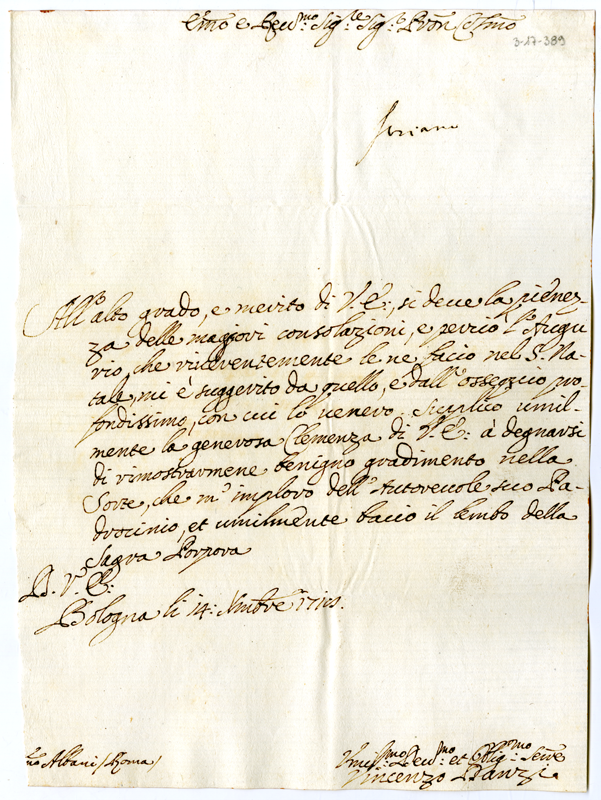 Emo e Revmo Sigre Sigre Pron Colmo
3-17-389
All'alto grado, e merito di V. E:, si deve la pienez-
za delle maggiori consolazioni, e perciò l'Augu-
rio, che riverentemente le ne facio nel S. Na-
tale, mi è suggerito da quello, e dall'ossequio pro-
fondissimo, con cui lo venero. Suplico umil-
mente la generosa Clemenza di V. E: à degnarsi
di rimostrarmene benigno gradimento nella
Sorte, che m'imploro dell'Autorevole suo Pa-
drocinio, et umilmente bacio il lembo della
Sagra Porpora
D. V. E:
Bologna li 14: Xmbre
Albani (Roma)
Umilmo Devmo et Obligmo Serre
Vincenzo